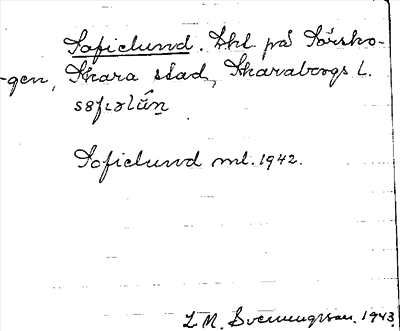 Sofielund. Lkl på Sörsko-
gen, Skara stad, Skaraborgs l.
Sofielund ml. 1942.
L M. Svenungsson. 1943.